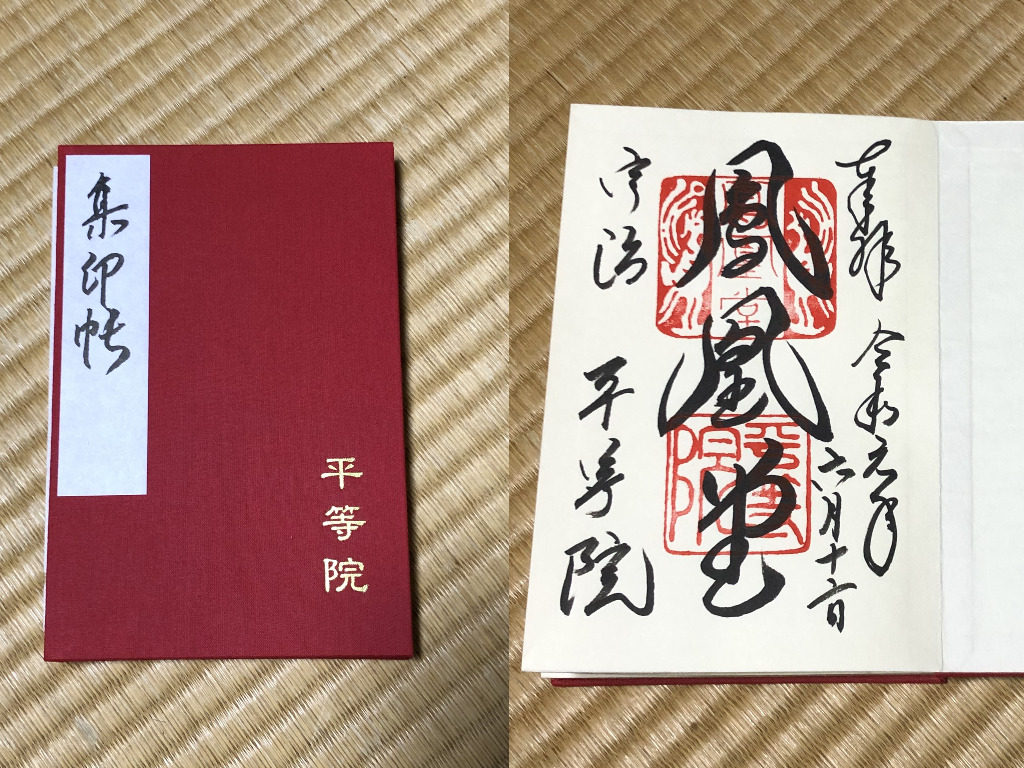 集印帳
平等院
奉拝 令和元年
六月十六日
鳳凰堂
宇治 平等院
平等院